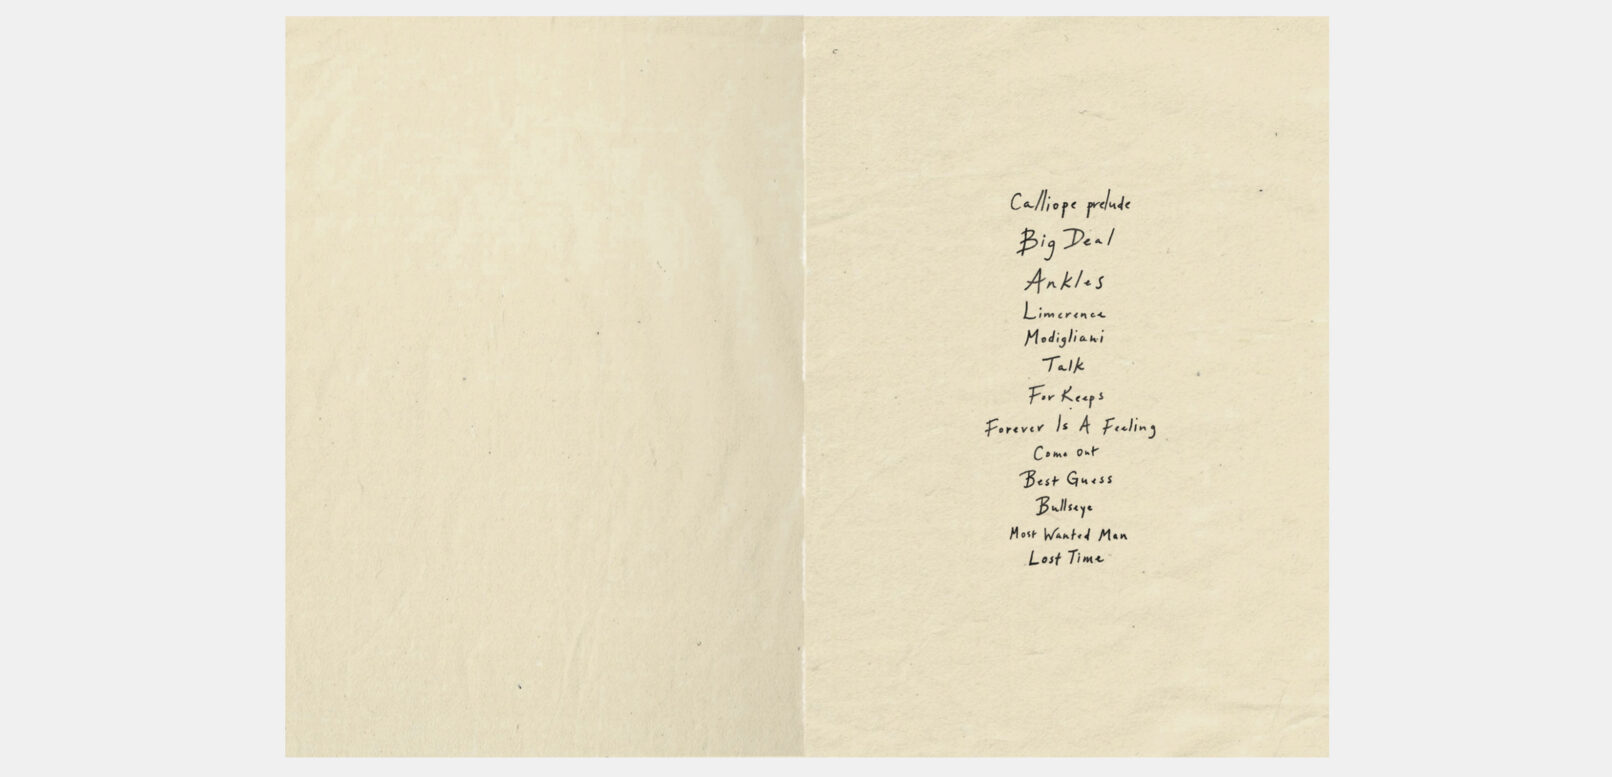 Calliope prelude
Big Deal
Ankles
Limerence
Modigliani
Talk
For Keeps
Forever Is A Feeling
Come out
Best Guess
Bullseye
Most Wanted Man
Lost Time